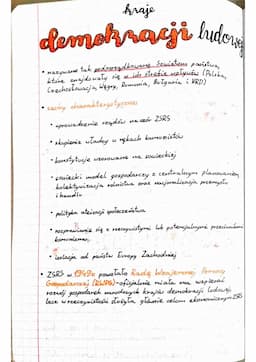 kraje
demokracji ludowej
• nazywano tak podporządkowane Sowietom państwa,
które znajdowały się w ich strefie wpływów (Polska,
Czechosłowacja, Węgry, Rumunia, Bułgaria i NRD)
• cechy charakterystyczne:
• uprowadzenie rządów na wzór ZSRS
• skupienie władzy w rękach komunistów
• konstytucje wzorowane na sowieckiej
• sowiecki model gospodarczy z centralnym planowaniem,
kolektywizacja rolnictwa oraz nacjonalizacja przemysłu
i handlu
• polityka ateizacji społeczeństwa
• rozprawianie się z rzeczywistymi lub potencjalnymi przeciwnikami
komunizmu
• izolacja od państw Europy Zachodniej
• ZSRS w 1949r. powołały Radę Wzajemnej Pomocy
Gospodarczej (RWPG) - oficjalnie miała ona wspierać
rozwój gospodarek narodowych krajów demokracji ludowej,
lecz w rzeczywistości służyła głównie celom ekonomicznym ZSRS